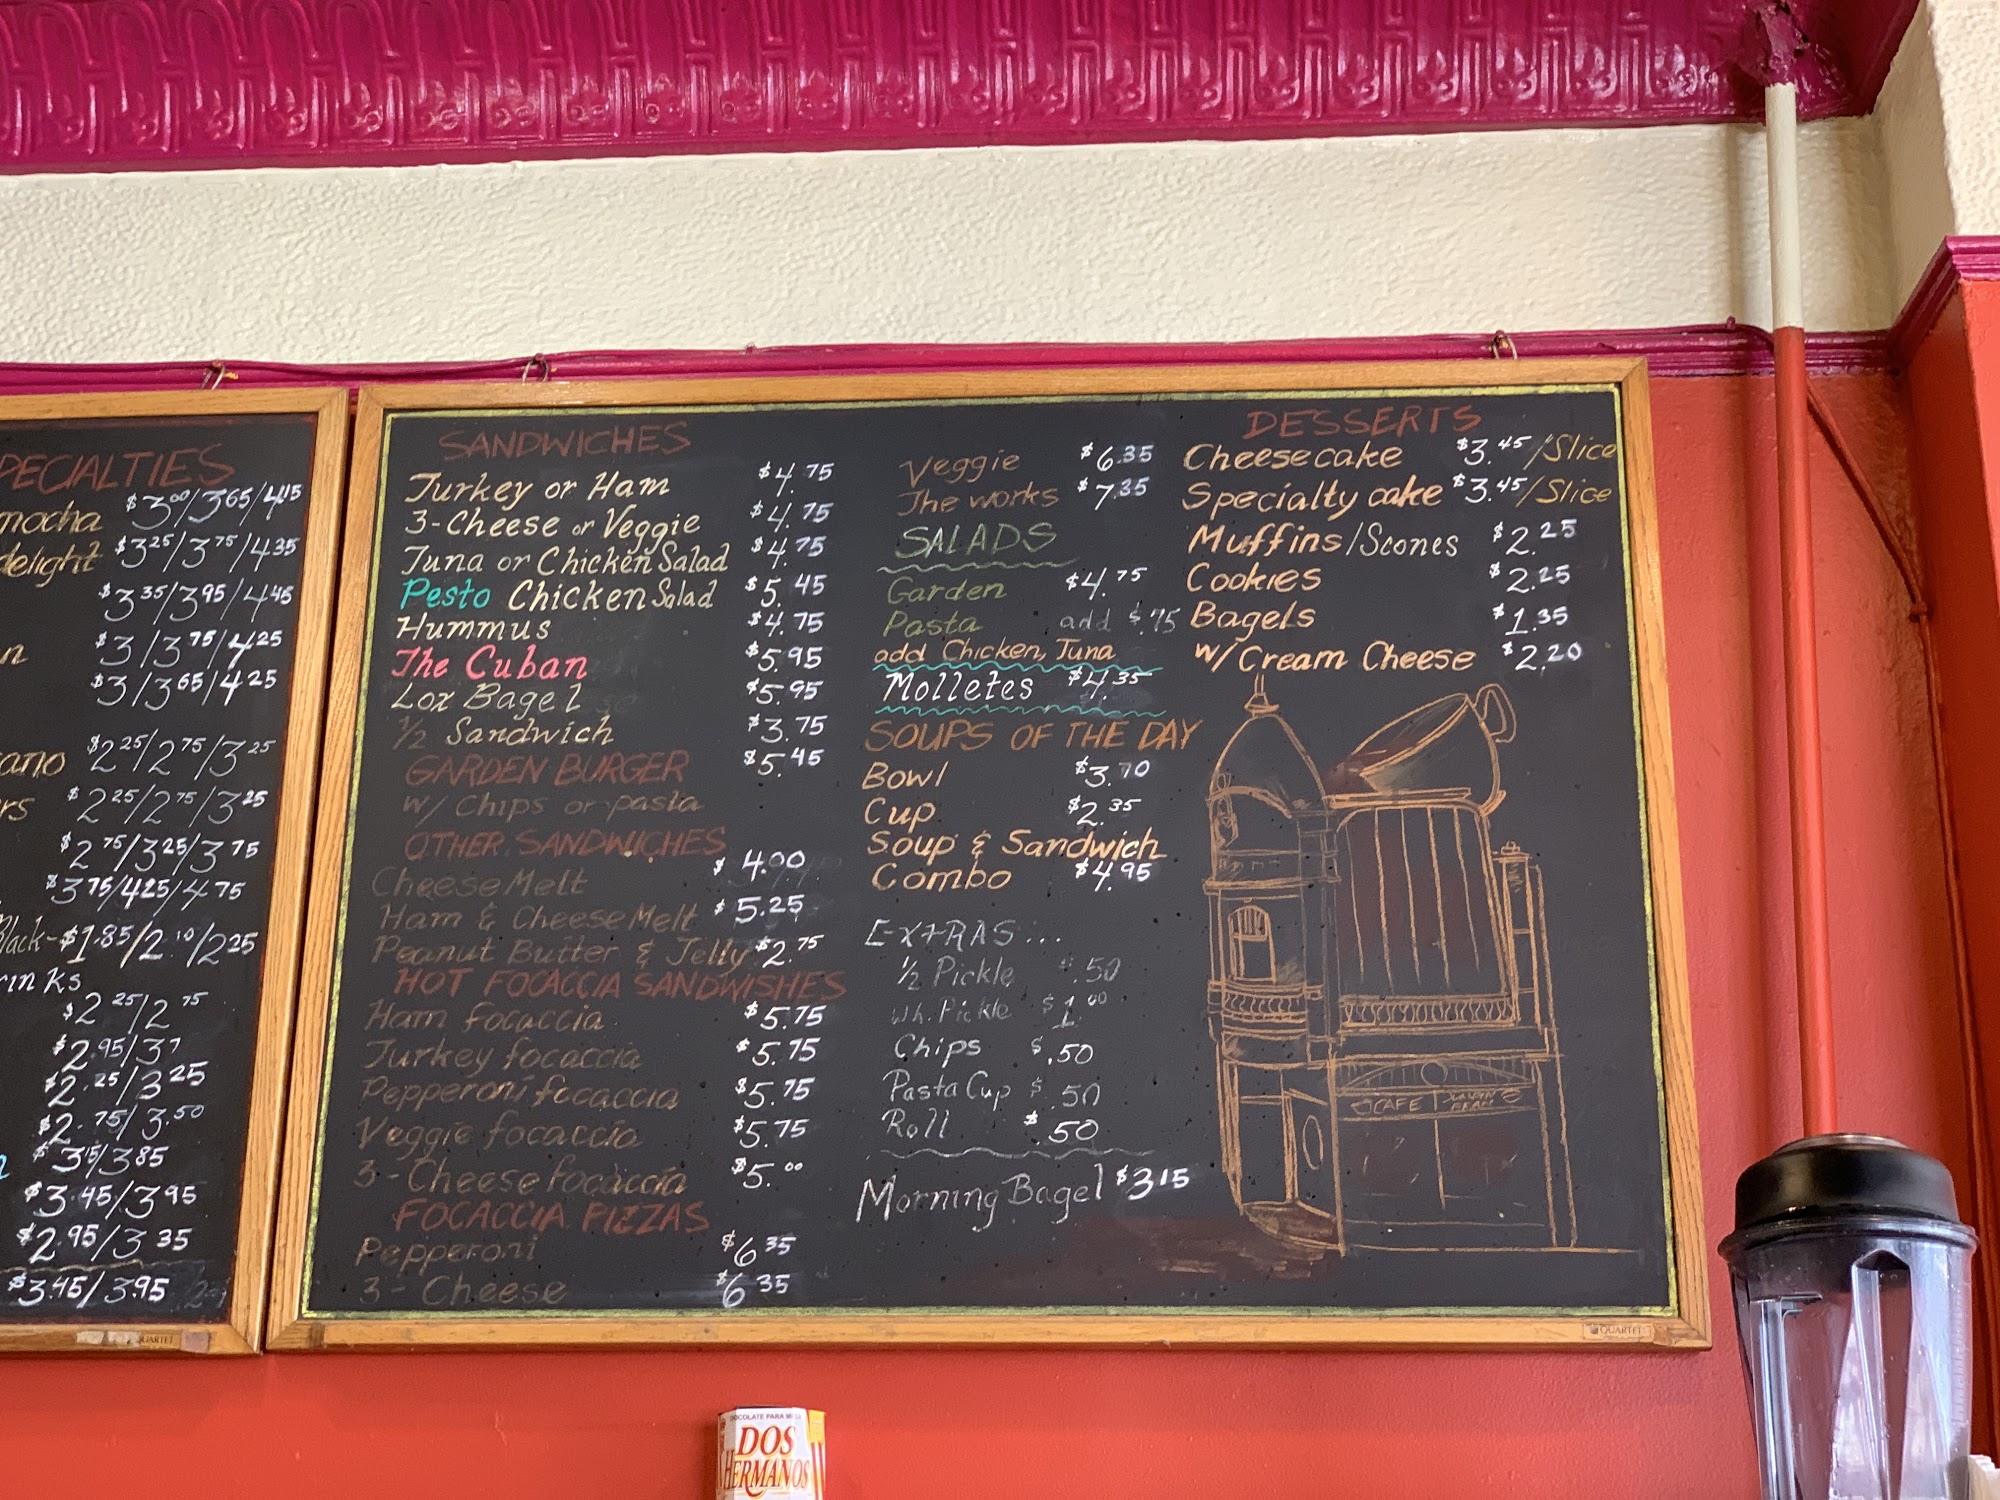 PECIALTIES
mocha $3.00/3.65/4.15
delight $3.25/3.75/4.35
$3.35/3.95/4.45
n $3/3.75/4.25
$3/3.65/4.25
ano $2.25/2.75/3.25
rs $2.25/2.75/3.25
$2.75/3.25/3.75
$3.75/4.25/4.75
lack-$1.85/2.10/2.25
rinks
$2.25/2.75
$2.95/3
$2.25/3.25
$2.75/3.50
$3.15/3.85
$3.45/3.95
$2.95/3.35
$3.45/3.95
SANDWICHES
Turkey or Ham $4.75
3-Cheese or Veggie $4.75
Tuna or Chicken Salad $4.75
Pesto Chicken Salad $5.45
Hummus $4.75
The Cuban $5.95
Lox Bagel $5.95
1/2 Sandwich $3.75
GARDEN BURGER $5.45
w/ Chips or pasta
OTHER SANDWICHES
Cheese Melt $4.00
Ham & Cheese Melt $5.25
Peanut Butter & Jelly $2.75
HOT FOCACCIA SANDWISHES
Ham focaccia $5.75
Turkey focaccia $5.75
Pepperoni focaccia $5.75
Veggie focaccia $5.75
3-Cheese focaccia $5.00
FOCACCIA PIZZAS
Pepperoni $6.35
3-Cheese $6.35
Veggie $6.35
The works $7.35
SALADS
Garden $4.75
Pasta add $.75
add Chicken, Tuna
Molletes $4.35
SOUPS OF THE DAY
Bowl $3.70
Cup $2.35
Soup & Sandwich
Combo $4.95
EXTRAS...
1/2 Pickle $.50
Wh. Pickle $1.00
Chips $.50
Pasta Cup $.50
Roll $.50
Morning Bagel $3.15
DESSERTS
Cheesecake $3.45/Slice
Specialty cake $3.45/Slice
Muffins/Scones $2.25
Cookies $2.25
Bagels $1.35
w/Cream Cheese $2.20
CAFE
QUARTET
QUARTET
CHOCOLATE PARA MESA
DOS
HERMANOS